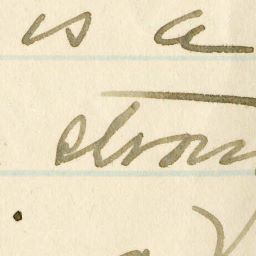 is a
strong